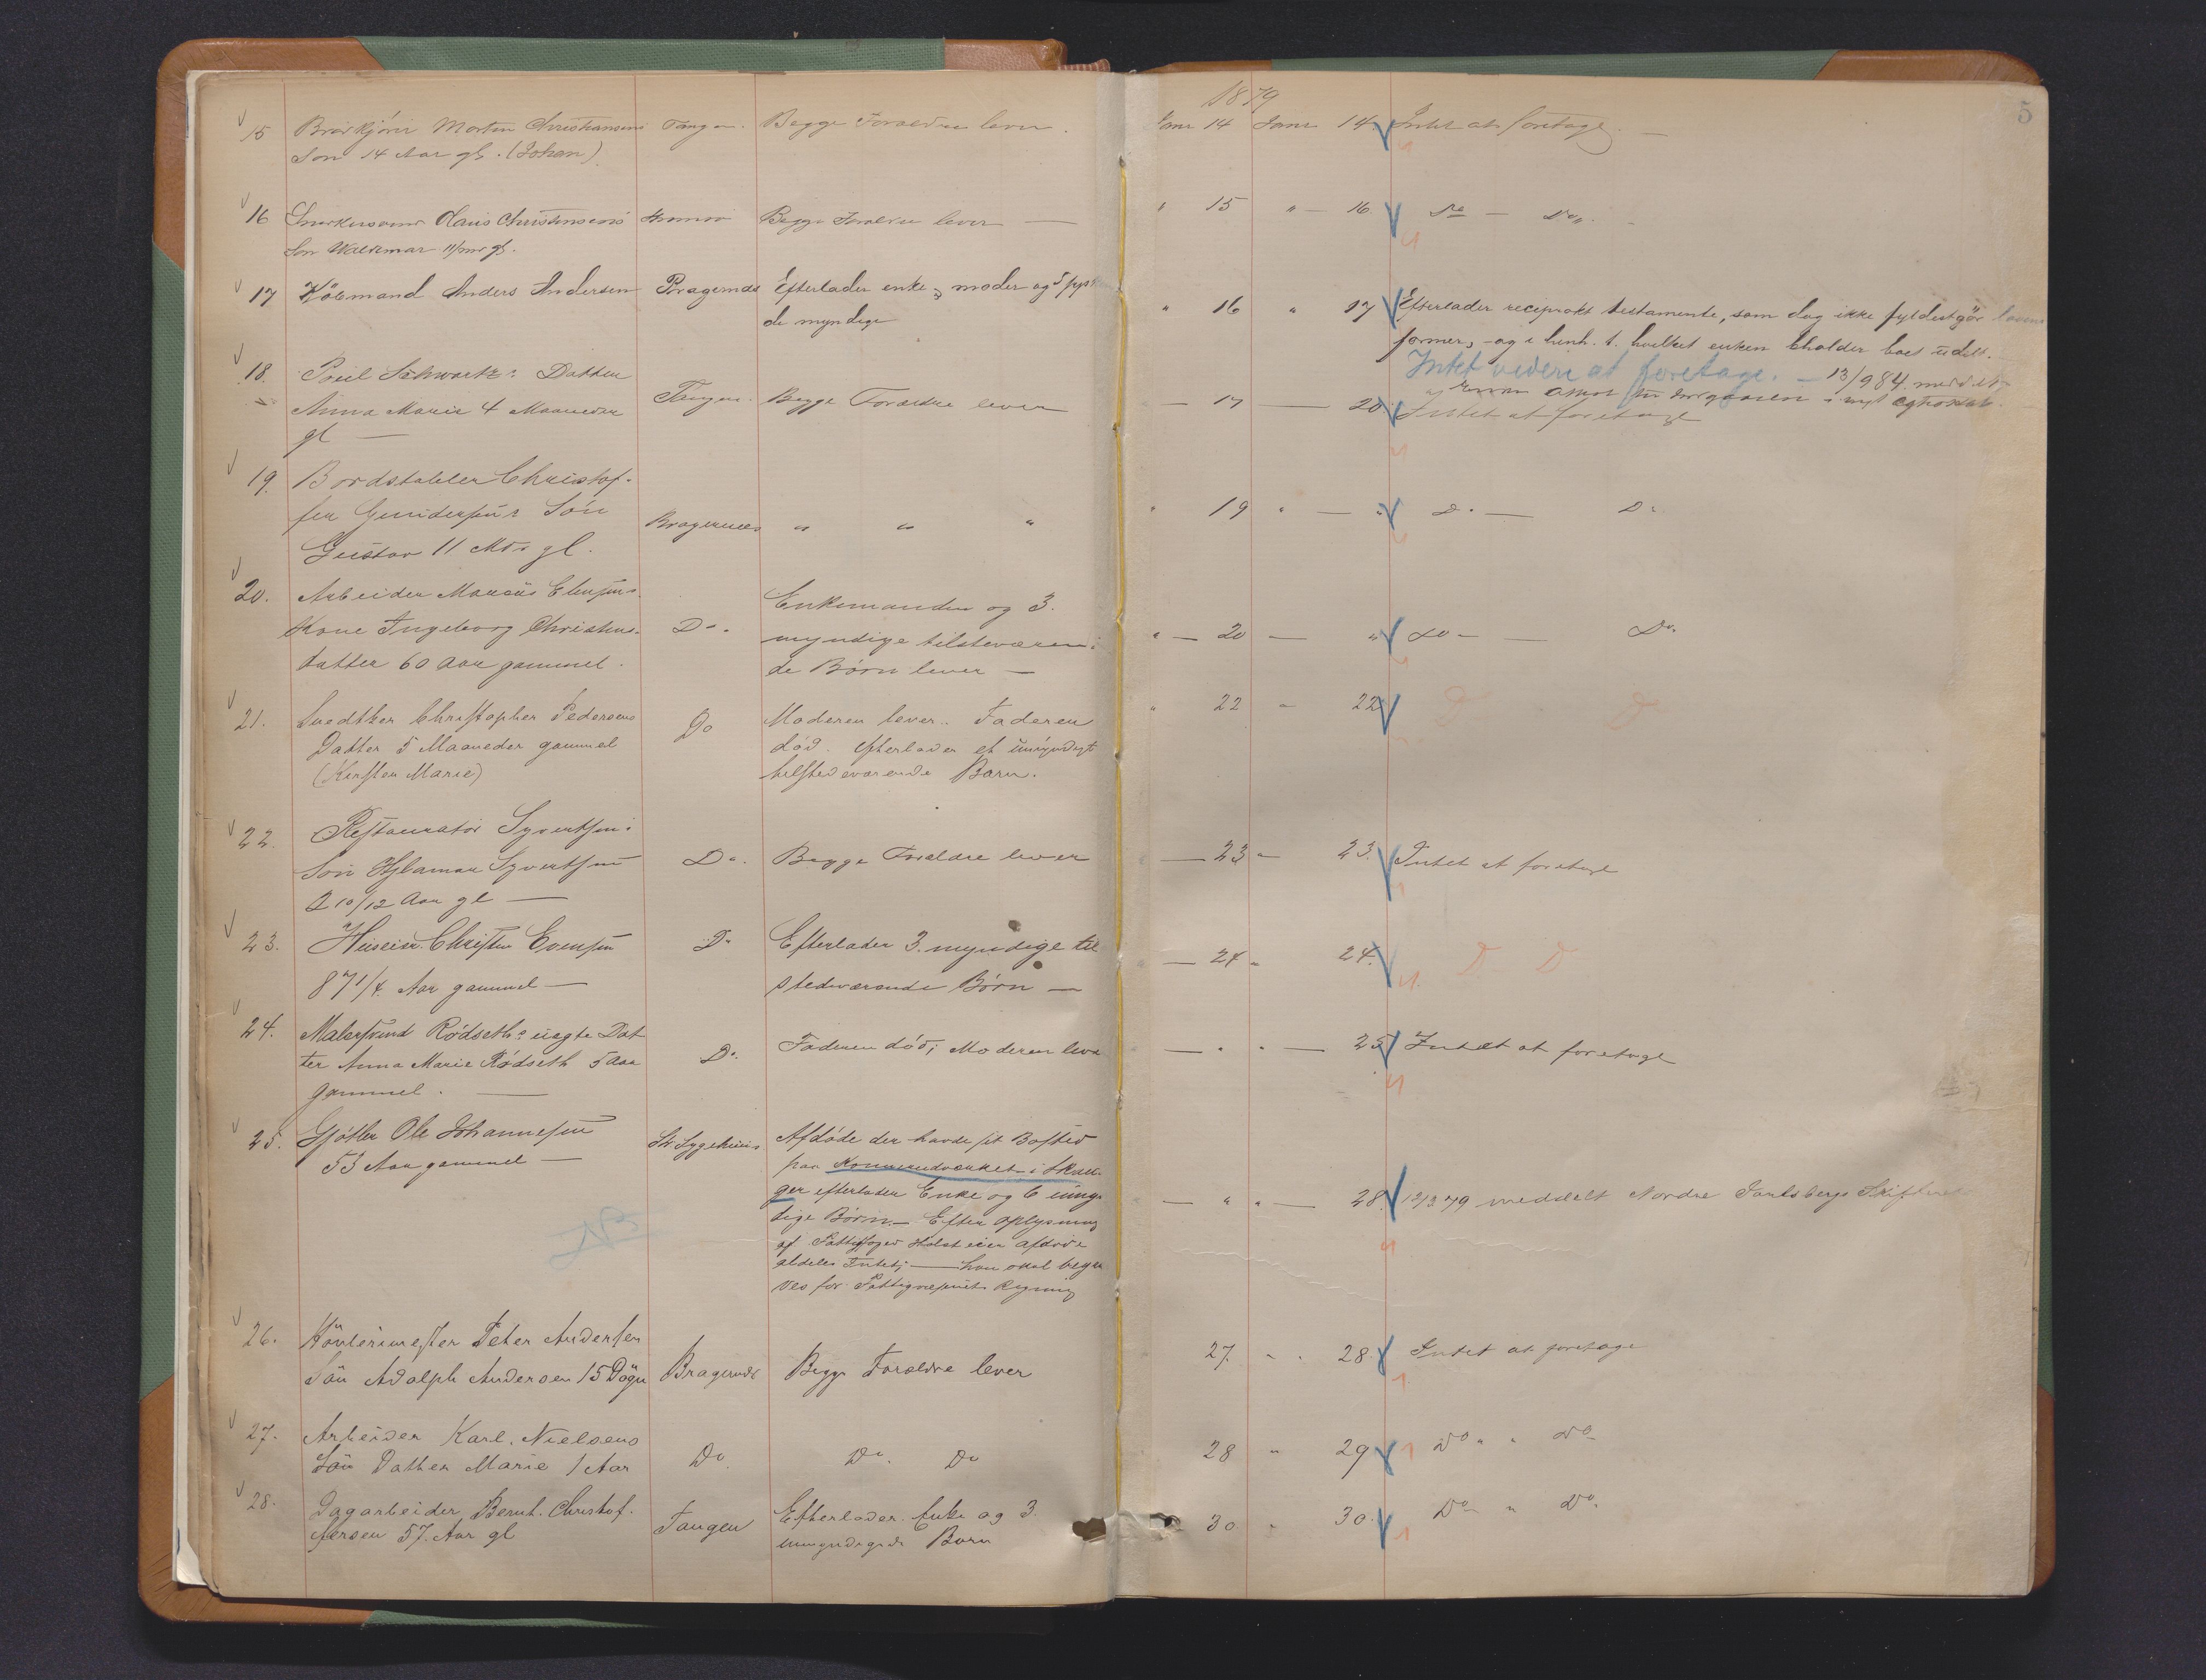 1879
5
15 Martin Christiansens Tangen. Begge Forældre lever. Janr 14 Janr 14 Intet at foretage. —
Søn 14 Aar gl. (Johan)
16 Christensens Strømsø Begge Forældre lever — " 15 " — 16 Do — Do
Søn Waldemar 11/mdr gl.
17 Köbmand Anders Andersen Bragernæs Efterlader enke, moder og 5 " 16 " 17 Efterlader reciprokt testamente, som dog ikke fyldestgör lovens
de myndige
former, - og i henh. t. hvilket enken beholder boet udelt.
Intet videre at foretage. — 13/9 84. meddelt
18. Poul Schwartz's Datter
Anna Marie 4 Maaneder Tangen. Begge Forældre lever — 17 — 20 Intet at foretage
gl —
19. Bordstabler Christof-
fer Gundersens Søn Bragernæs " " " " 19 " — " D. — D.
Gustav 11 Mdr gl.
20. Arbeider Marcus
Kone Ingeborg Christens- Do. Enkemanden og 3.
datter 60 Aar gammel. myndige tilstedeværen-
de Børn lever — " — 20 — " Do — — Do.
21. Christopher Pedersens Do Moderen lever. Faderen " 22 " 22 D D
Datter 5 Maaneder gammel død. Efterlader et umyndigt
(Kirsten Marie) tilstedeværende Barn.
22. Restauratør Syvertsens
Søn Hjlamar Syvertsen Do. Begge Forældre lever — 23 " 23. Intet at foretage
2 10/12 Aar gl —
23. Christen Evensen Do Efterlader 3. myndige til — 24 " 24. D D
87 1/4 Aar gammel — stedværende Børn —
24. Malersvend Rødseths uægte Dat
ter Anna Marie Rødseth 5 Aar Do. Faderen død; Moderen lever — " " — 25 Intet at foretage
gammel. —
25. Ole Johannesen St. Sygehuus Afdøde der havde sit Bosted
53 Aar gammel — paa Konnerudværket i Skou-
ger efterlader Enke og 6 umyn- — " " — 28. 12/3 79 meddelt Nordre Jarlsbergs Skifteret
dige Børn. — Efter Oplysning
NB
af Fattigfoged Holst eier afdøde
aldeles Intet; — han skal begra
ves for Fattigvæsenets Regning
26. Peter Andersen
Sön Adolph Andersen 15 Dögn Bragernæs Begge Forældre lever 27. " " 28. Intet at foretage
27. Arbeider Karl. Nielsens
Datter Marie 1 Aar Do. Do. Do 28 " 29 Do " " Do
28. Dagarbeider Bernt. Christof- Tangen Efterlader Enke og 3 30 " 30. Do " Do.
fersen 57. Aar gl Børn